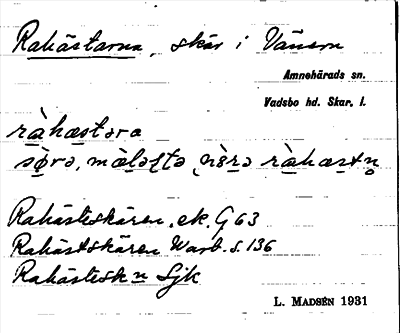 Rahästarna, skär i Vänern
Amnehärads sn.
Vadsbo hd. Skar. l.
ràhæstəra
sø̀rə, mæ̀ləstə, nèrə ràhæstn̥
Rahästeskären. ek. G 63
Rahästskären Warb. s. 136
Rahästesk n Sjk
L. MADSÉN 1931